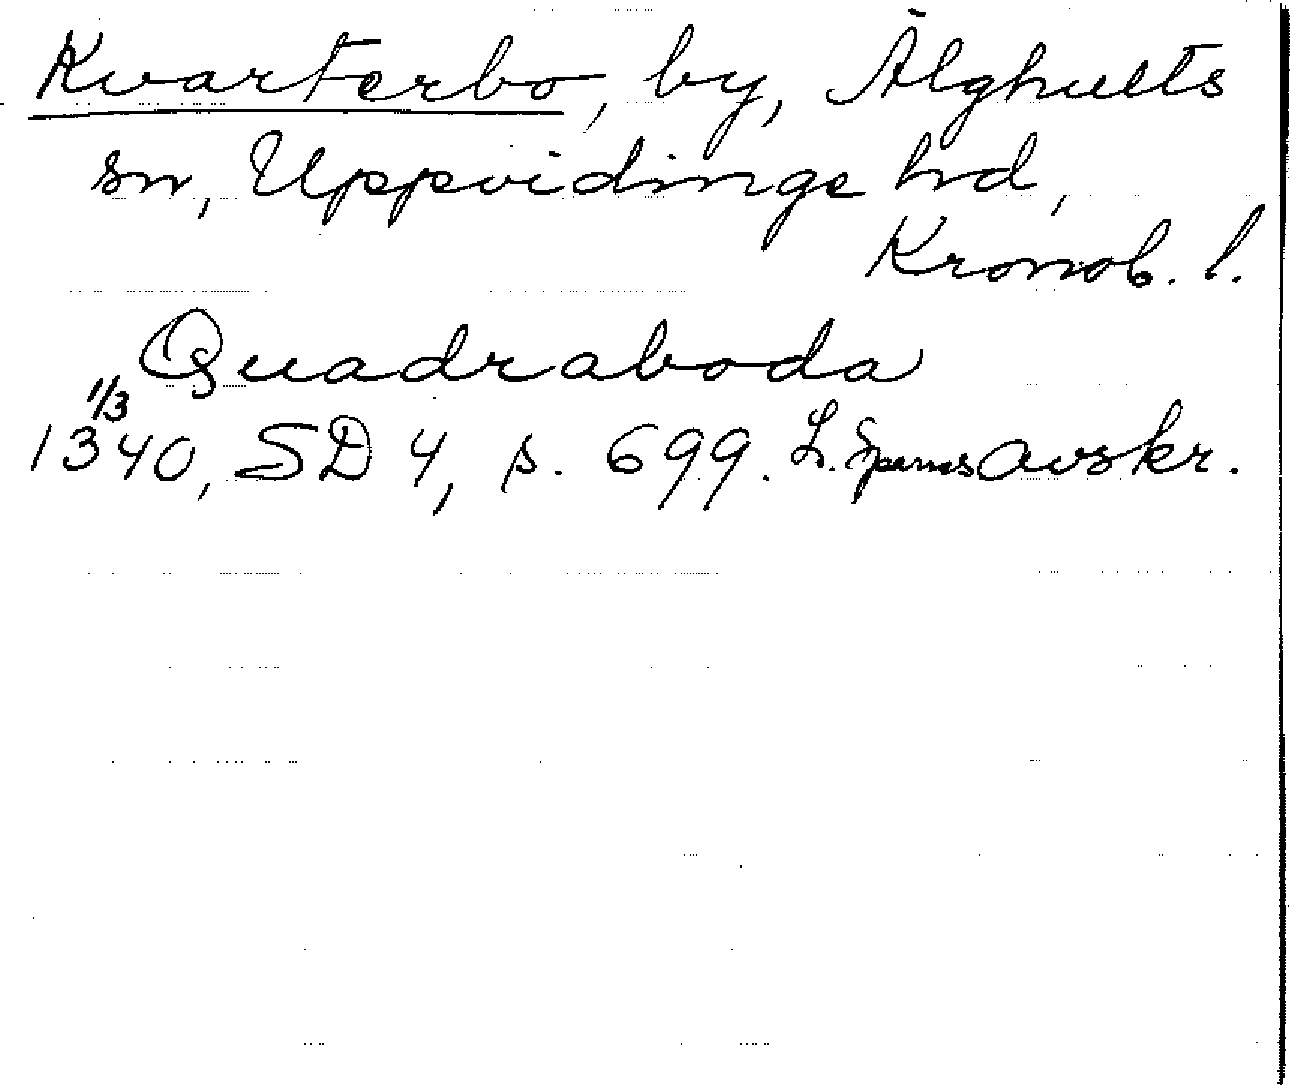 Kvarterbo, by, Älghults
sn, Uppvidinge hrd,
Kronob. l.
Quadraboda
1/3
1340, SD 4, s. 699. L. Sparres avskr.